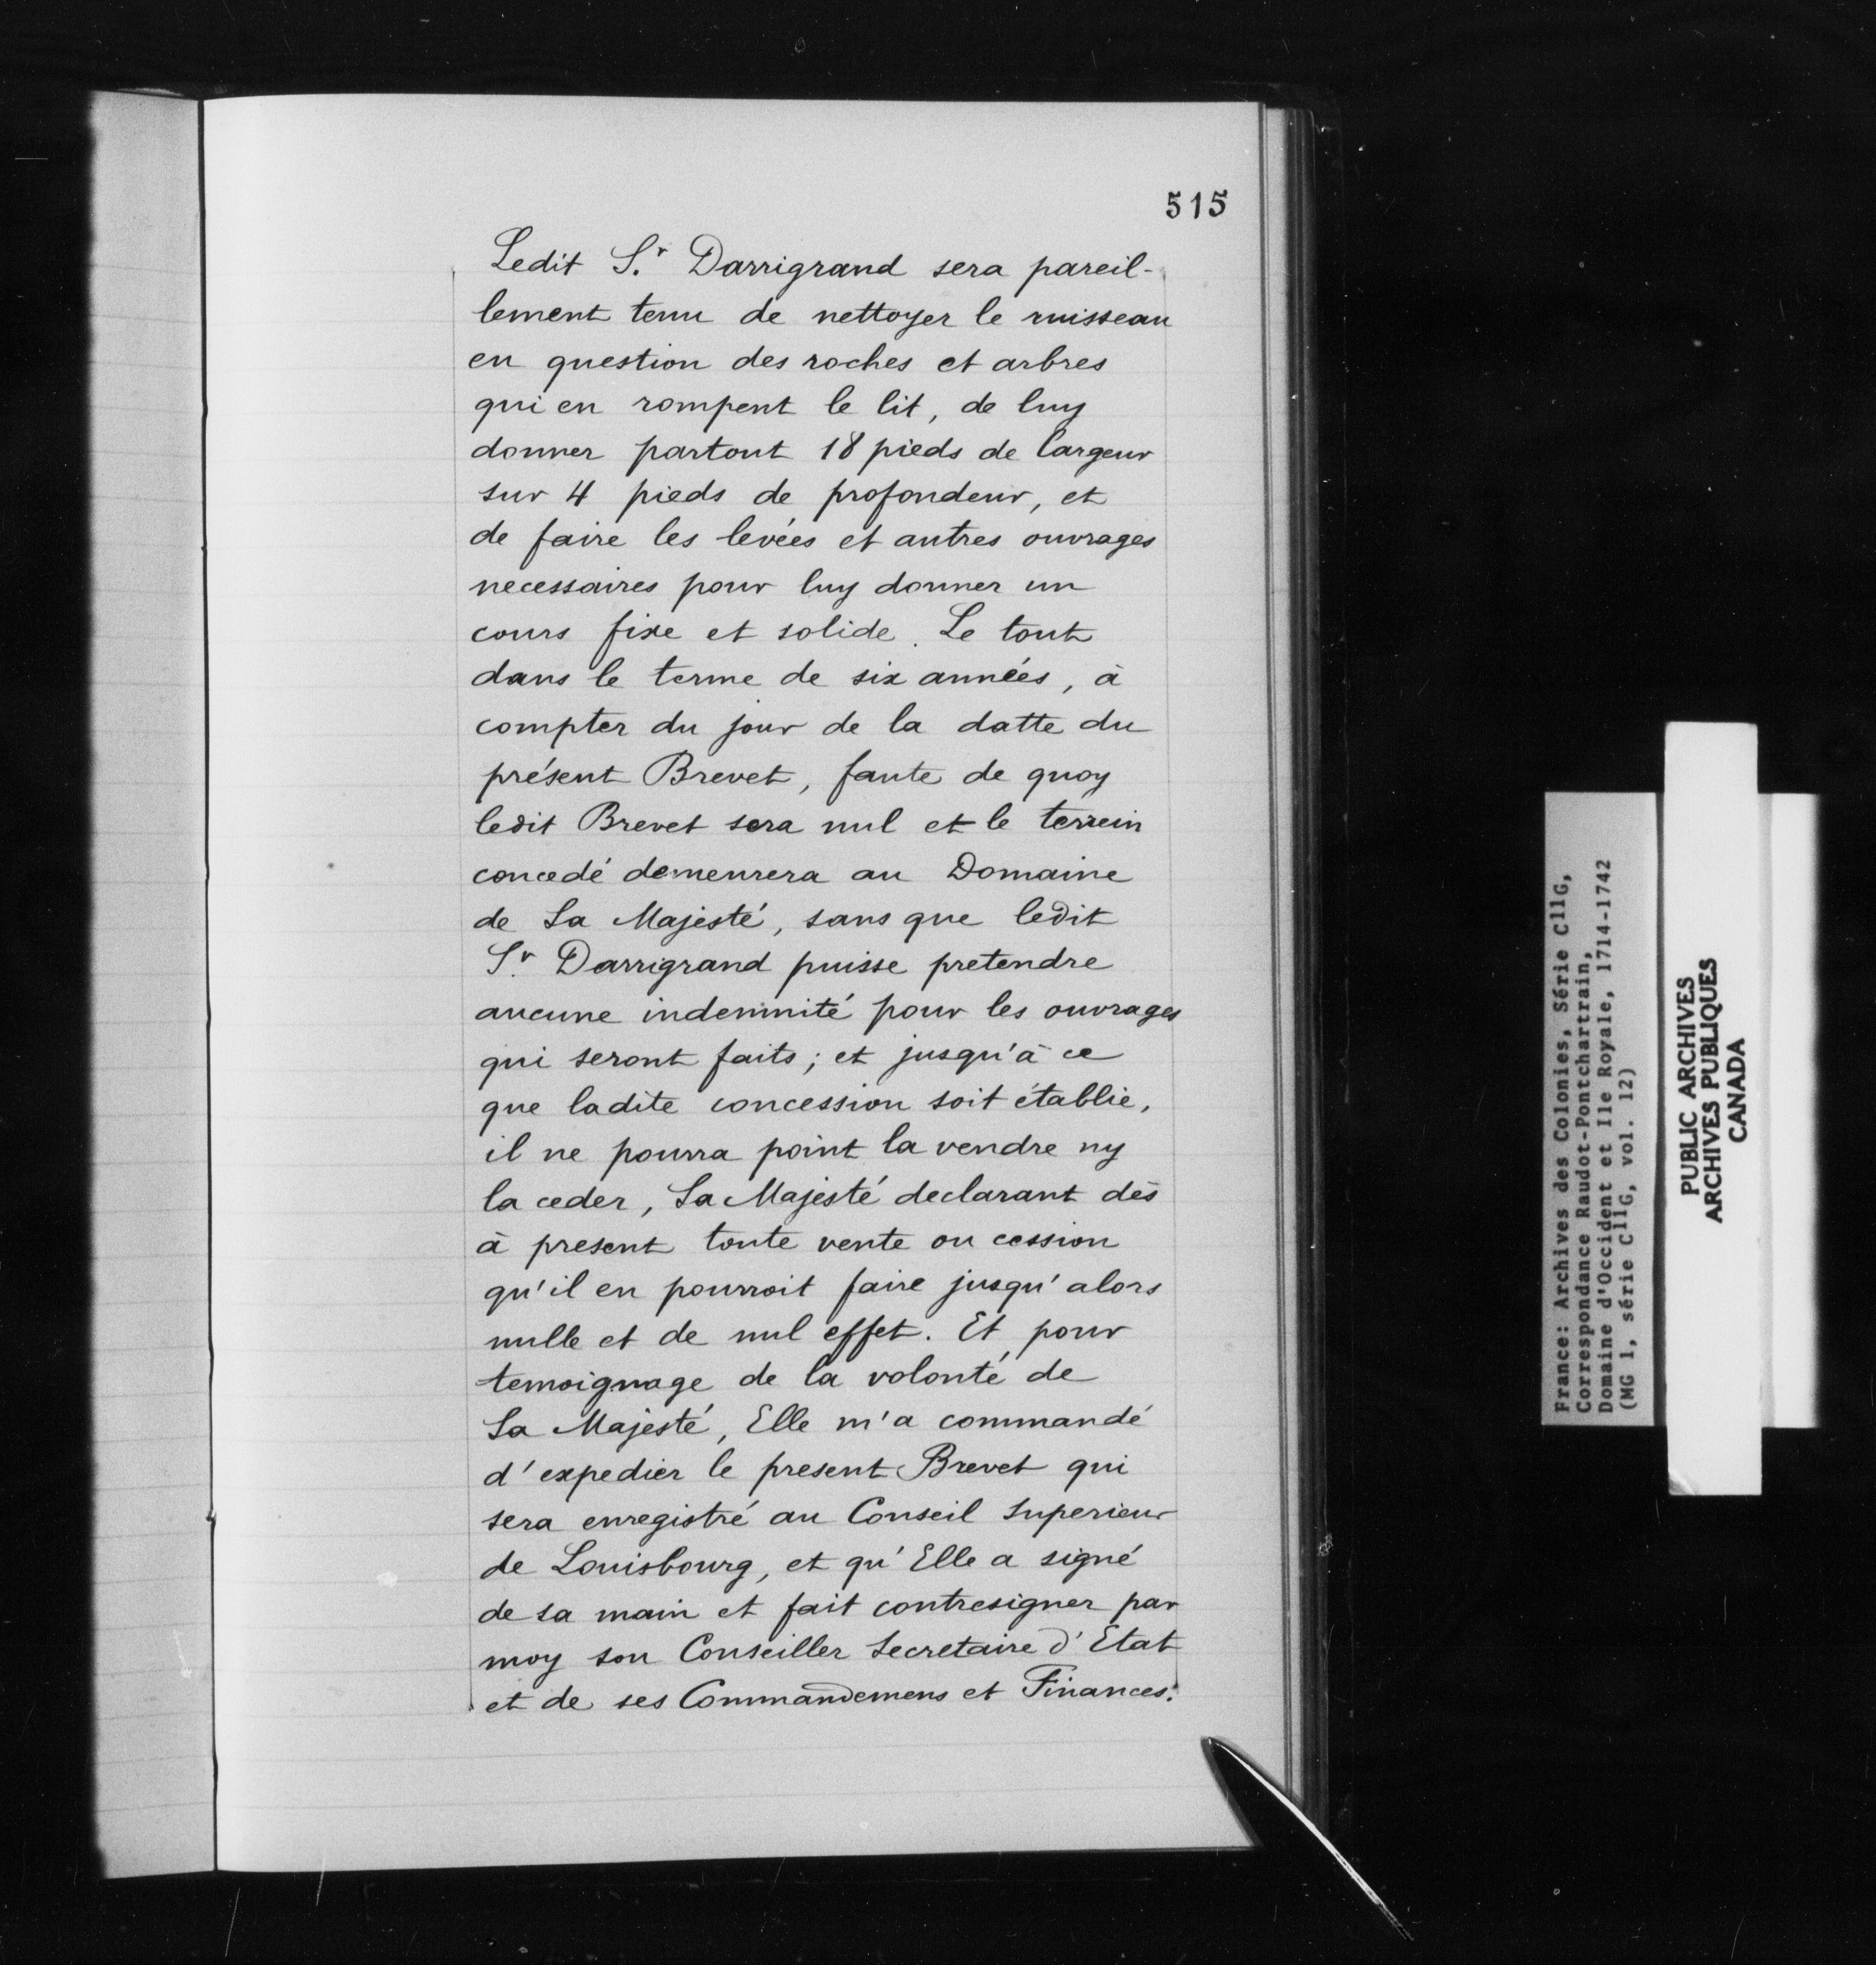 515
Ledit S.r Darrigrand sera pareil-
lement tenu de nettoyer le ruisseau
en question des roches et arbres
qui en rompent le lit, de luy
donner partout 18 pieds de largeur
sur 4 pieds de profondeur, et
de faire les levées et autres ouvrages
necessaires pour luy donner un
cours fixe et solide. Le tout
dans le terme de six années, à
compter du jour de la datte du
présent Brevet, faute de quoy
ledit Brevet sera nul et le terrein
concedé demeurera au Domaine
de Sa Majesté, sans que ledit
S.r Darrigrand puisse pretendre
aucune indemnité pour les ouvrages
qui seront faits; et jusqu'à ce
que ladite concession soit établie,
il ne pourra point la vendre ny
la ceder, Sa Majesté declarant dès
à present toute vente ou cession
qu'il en pourroit faire jusqu'alors
nulle et de nul effet. Et pour
temoignage de la volonté de
Sa Majesté, Elle m'a commandé
d'expedier le present Brevet qui
sera enregistré au Conseil Superieur
de Louisbourg, et qu'Elle a signé
de sa main et fait contresigner par
moy son Conseiller Secretaire d'Etat
et de ses Commandemens et Finances.
France: Archives des Colonies, Série C11G,
Correspondance Raudot-Pontchartrain,
Domaine d'Occident et Ile Royale, 1714-1742
(MG 1, série C11G, vol. 12)
PUBLIC ARCHIVES
ARCHIVES PUBLIQUES
CANADA